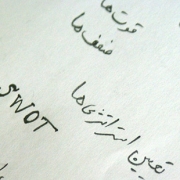 قوت‌ها
ضعف‌ها
تعیین استراتژی‌ها
SWOT